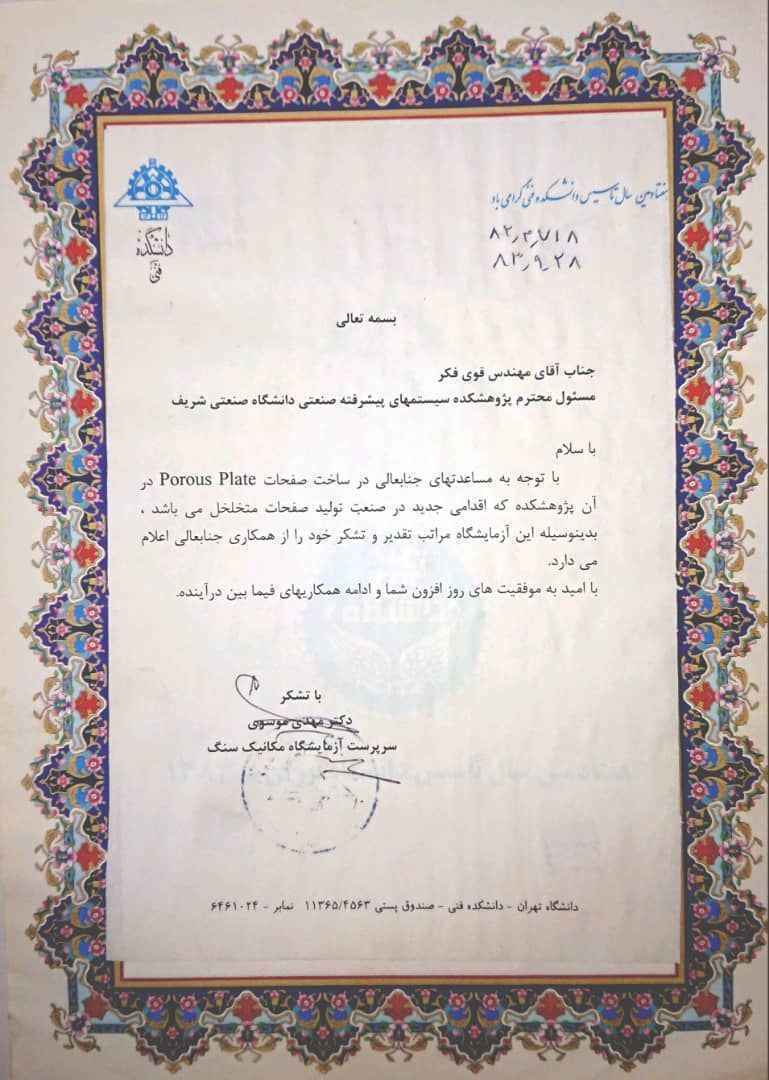 هفتادمین سال تاسیس دانشکده فنی گرامی باد
دانشکده
فنی
۸۲٫۳٫۷۱۸
۸۳٫۹٫۲۸
بسمه تعالی
جناب آقای مهندس قوی فکر
مسئول محترم پژوهشکده سیستمهای پیشرفته صنعتی دانشگاه صنعتی شریف
با سلام
با توجه به مساعدتهای جنابعالی در ساخت صفحات Porous Plate در
آن پژوهشکده که اقدامی جدید در صنعت تولید صفحات متخلخل می باشد ،
بدینوسیله این آزمایشگاه مراتب تقدیر و تشکر خود را از همکاری جنابعالی اعلام
می دارد.
با امید به موفقیت های روز افزون شما و ادامه همکاریهای فیما بین درآینده.
با تشکر
دکتر مهدی موسوی
سرپرست آزمایشگاه مکانیک سنگ
دانشگاه تهران - دانشکده فنی - صندوق پستی ۱۱۳۶۵/۴۵۶۳ نمابر - ۶۴۶۱۰۲۴